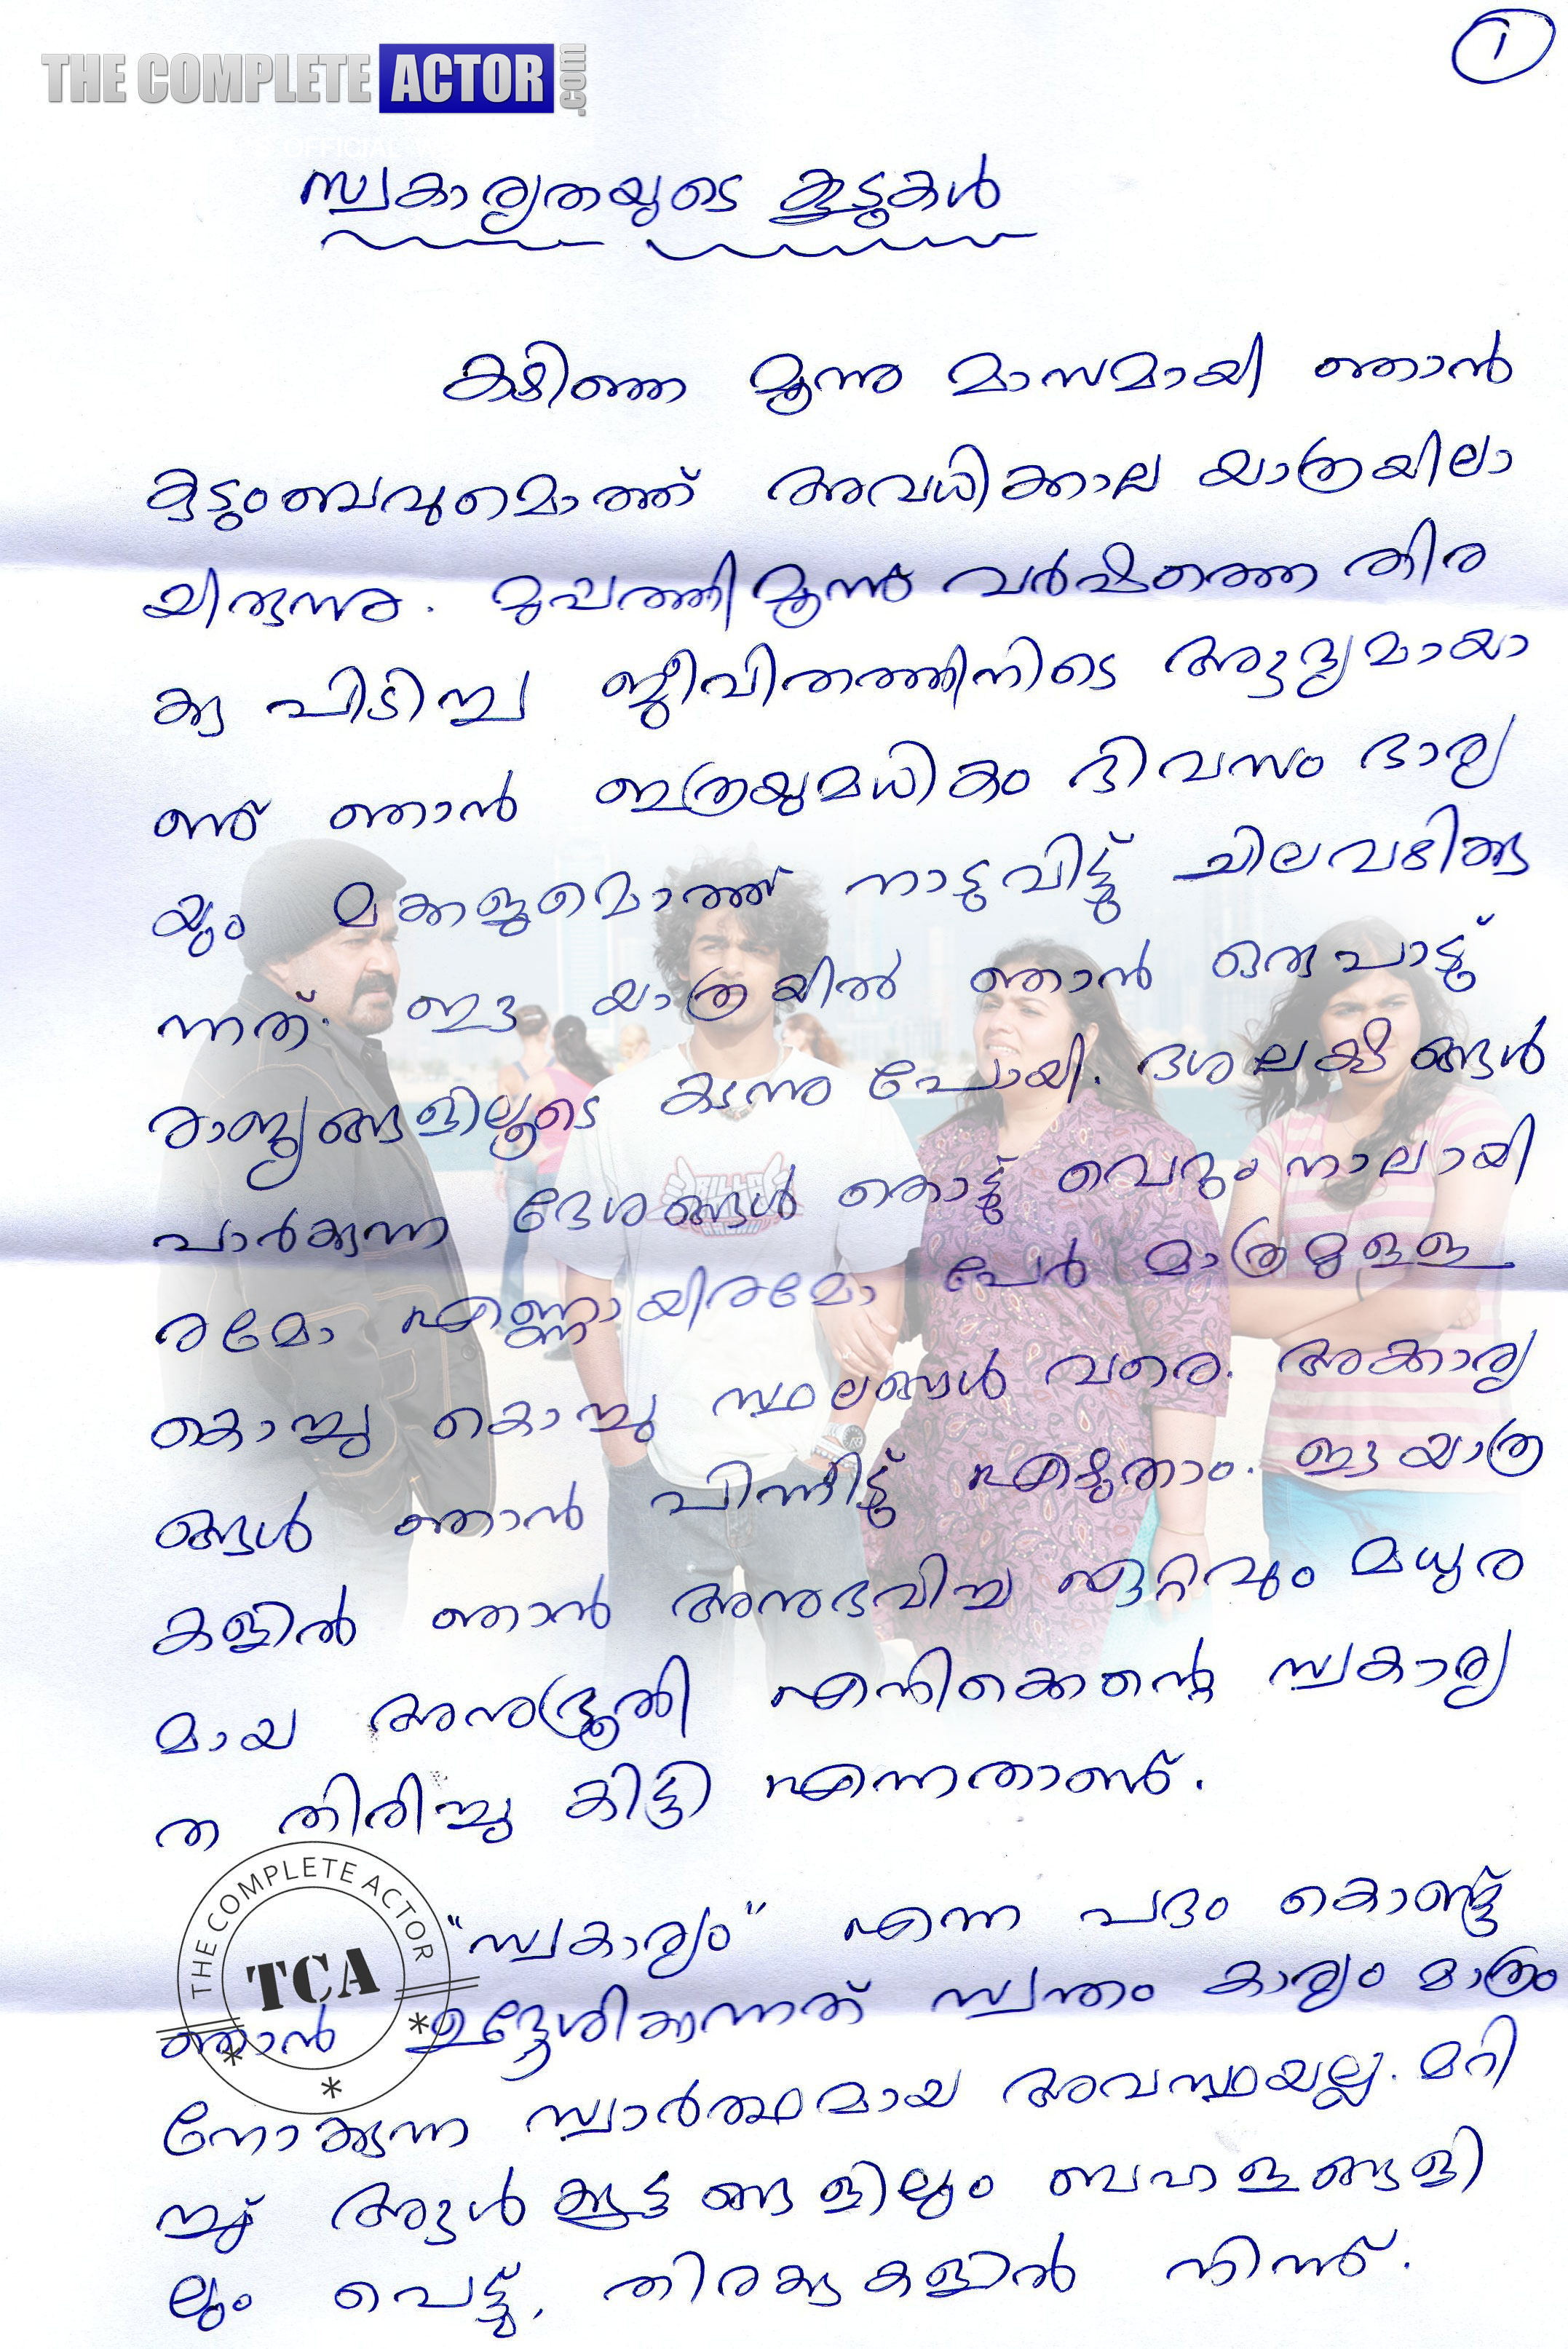 THE COMPLETE ACTOR .com
1
OFFICIAL
സ്വകാര്യതയുടെ കൂടുകൾ
കഴിഞ്ഞ മൂന്നു മാസമായി ഞാൻ
കുടുംബവുമൊത്ത് അവധിക്കാല യാത്രയിലാ
യിരുന്നു. മുപ്പത്തിമൂന്നു വർഷത്തെ തിര
ക്കു പിടിച്ച ജീവിതത്തിനിടെ ആദ്യമായാ
ണ് ഞാൻ ഇത്രയുമധികം ദിവസം ഭാര്യ
യും മക്കളുമൊത്ത് നാടുവിട്ട് ചിലവഴിക്കു
ന്നത്. ഈ യാത്രയിൽ ഞാൻ ഒരുപാട്
രാജ്യങ്ങളിലൂടെ കടന്നു പോയി. ദശലക്ഷങ്ങൾ
പാർക്കുന്ന ദേശങ്ങൾ തൊട്ട് വെറും നാലായി
രമോ എണ്ണായിരമോ പേർ മാത്രമുള്ള
കൊച്ചു കൊച്ചു സ്ഥലങ്ങൾ വരെ. അക്കാര്യ
ങ്ങൾ ഞാൻ പിന്നീട് എഴുതാം. ഈ യാത്ര
കളിൽ ഞാൻ അനുഭവിച്ച ഏറ്റവും മധുര
മായ അനുഭൂതി എനിക്കെന്റെ സ്വകാര്യ
ത തിരിച്ചു കിട്ടി എന്നതാണ്.
"സ്വകാര്യം" എന്ന പദം കൊണ്ട്
ഞാൻ ഉദ്ദേശിക്കുന്നത് സ്വന്തം കാര്യം മാത്രം
നോക്കുന്ന സ്വാർത്ഥമായ അവസ്ഥയല്ല. മറി
ച്ച് ആൾക്കൂട്ടങ്ങളിലും ബഹളങ്ങളി
ലും പെട്ട്, തിരക്കുകളിൽ നിന്ന്.
THE COMPLETE ACTOR
TCA